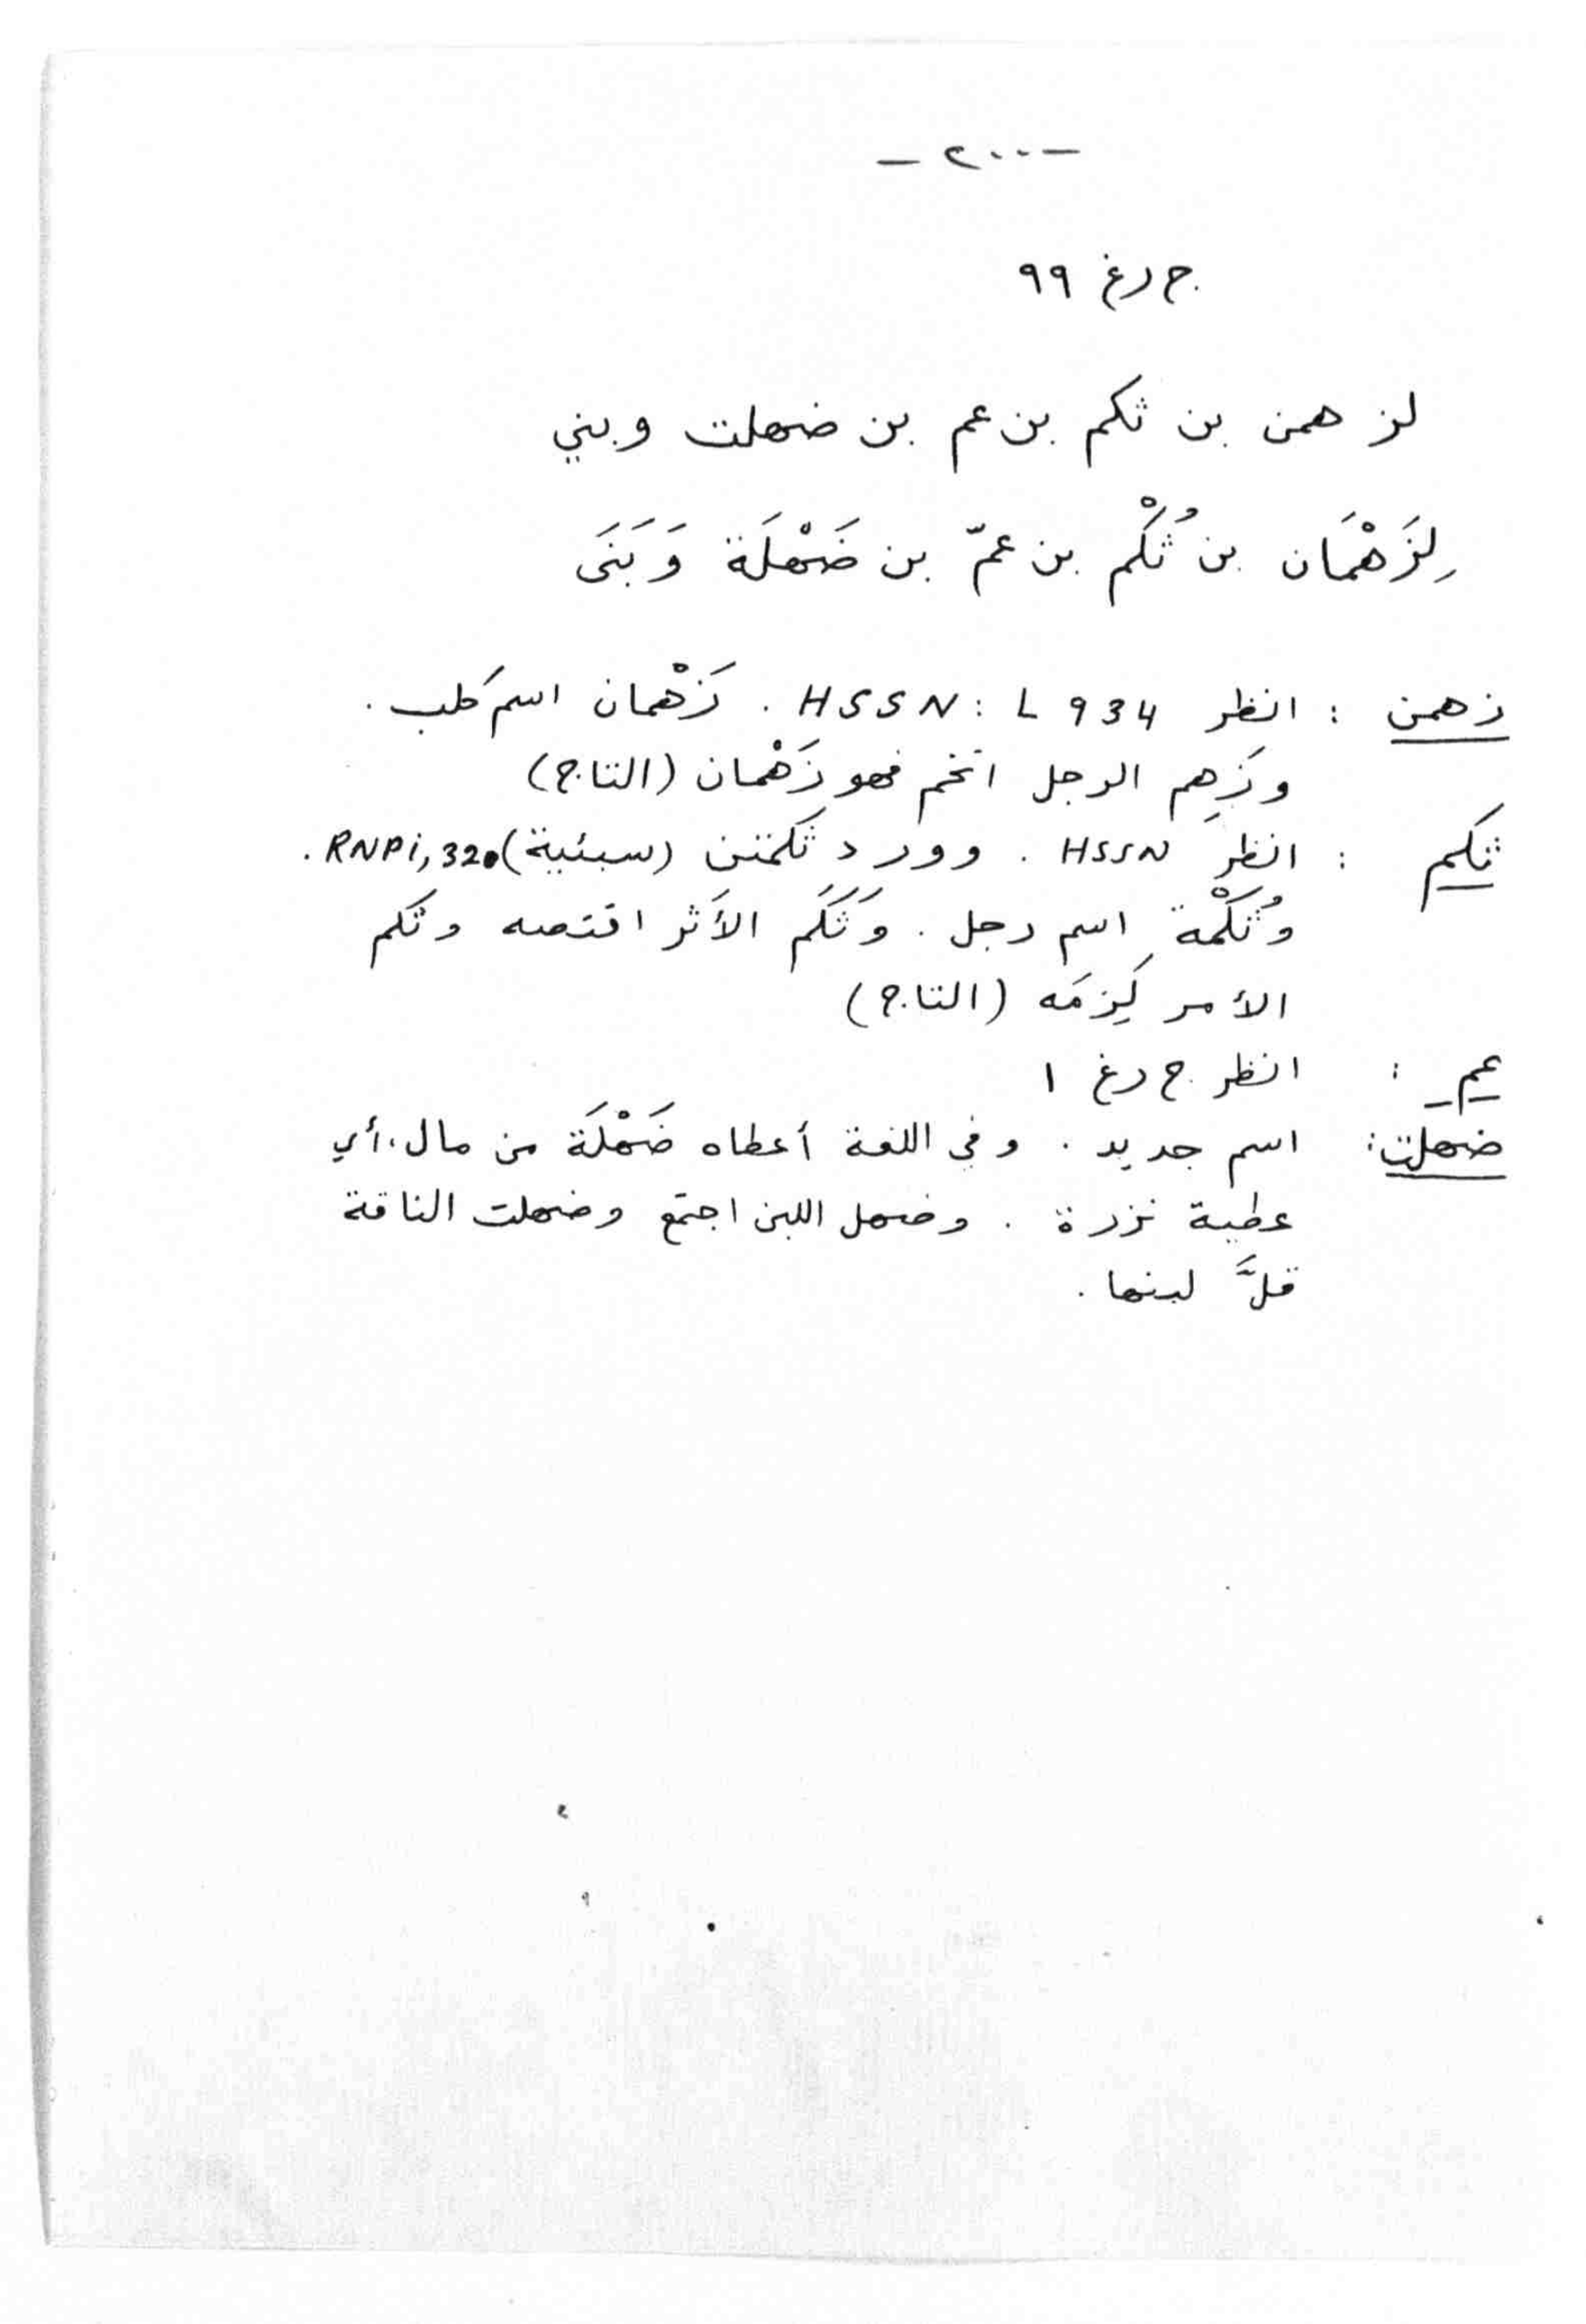 - ٢٠٠ -
ج رغ ٩٩
لز همن بن ثكم بن عم بن ضهلت وبني
لِزَهْمَان بن ثُكْم بن عمّ بن ضَهْلَة وَبَنَى
زهمن : انظر HSSN : L 934 . زَهْمان اسم كلب .
وزَهِم الرجل اتخم فهو زَهْمان (التاج)
ثكم : انظر HSSN . وورد ثكمتن (سبئية) RNPi, 320 .
وثُكْمة اسم رجل . وَثَكَم الأَثر اقتصه وثكم
الأمر لَزِمَه (التاج)
عم : انظر ج رغ ١
ضهلت : اسم جديد . وفي اللغة أعطاه ضَهْلَة من مال، أي
عطية نزرة . وضهل اللبن اجتمع وضهلت الناقة
قلَّ لبنها .